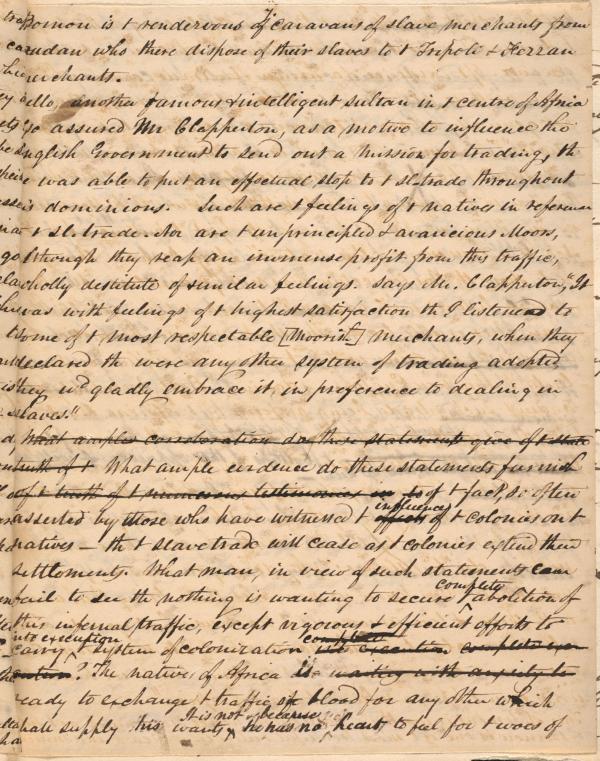 omon is t rendezvous of caravans of slave merchants from
oudan who there dispose of their slaves to t Tripoli & Fezzan
merchants.
ello, another famous & intelligent sultan in t centre of Africa
assured Mr Clapperton, as a motive to influence the
nglish Government to send out a mission for trading, th
e was able to put an effectual stop to t sl. trade throughout
is dominions. Such are t feelings of t natives in reference
t sl. trade. Nor are t unprincipled & avaricious Moors,
lthough they reap an immense profit from this traffic,
wholly destitute of similar feelings. says Mr. Clapperton, "It
was with feelings of t highest satisfaction th I listened to
some of t most respectable [Moorish] merchants, when they
declared th were any other system of trading adopted
they wd gladly embrace it, in preference to dealing in
slaves."
What ample corroboration do these statements give of t
truth of t What ample evidence do these statements furnish
of t truth of t numerous testimonies of t fact, so often
asserted by those who have witnessed t effects influence of t colonies on t
natives — th t slave trade will cease as t colonies extend their
settlements. What man, in view of such statements can
fail to see th nothing is wanting to secure complete abolition of
this infernal traffic, except vigorous & efficient efforts to
carry into execution t system of colonization complete execution complete
? The native of Africa is waiting with anxiety to
ready to exchange t traffic of blood for any other which
supply his wants. It is not because he has no heart to feel for t woes of